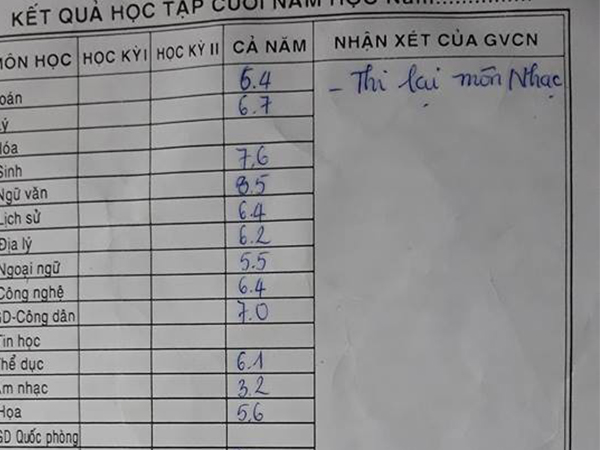 KẾT QUẢ HỌC TẬP CUỐI NĂM HỌC Năm................
MÔN HỌC HỌC KỲ I HỌC KỲ II CẢ NĂM NHẬN XÉT CỦA GVCN
oán 6.4 - Thi lại môn Nhạc
ý 6.7
óa
Sinh 7.6
Ngữ văn 8.5
Lịch sử 6.4
Địa lý 6.2
Ngoại ngữ 5.5
Công nghệ 6.4
GD-Công dân 7.0
Tin học
hể dục 6.1
m nhạc 3.2
Họa 5.6
GD Quốc phòng